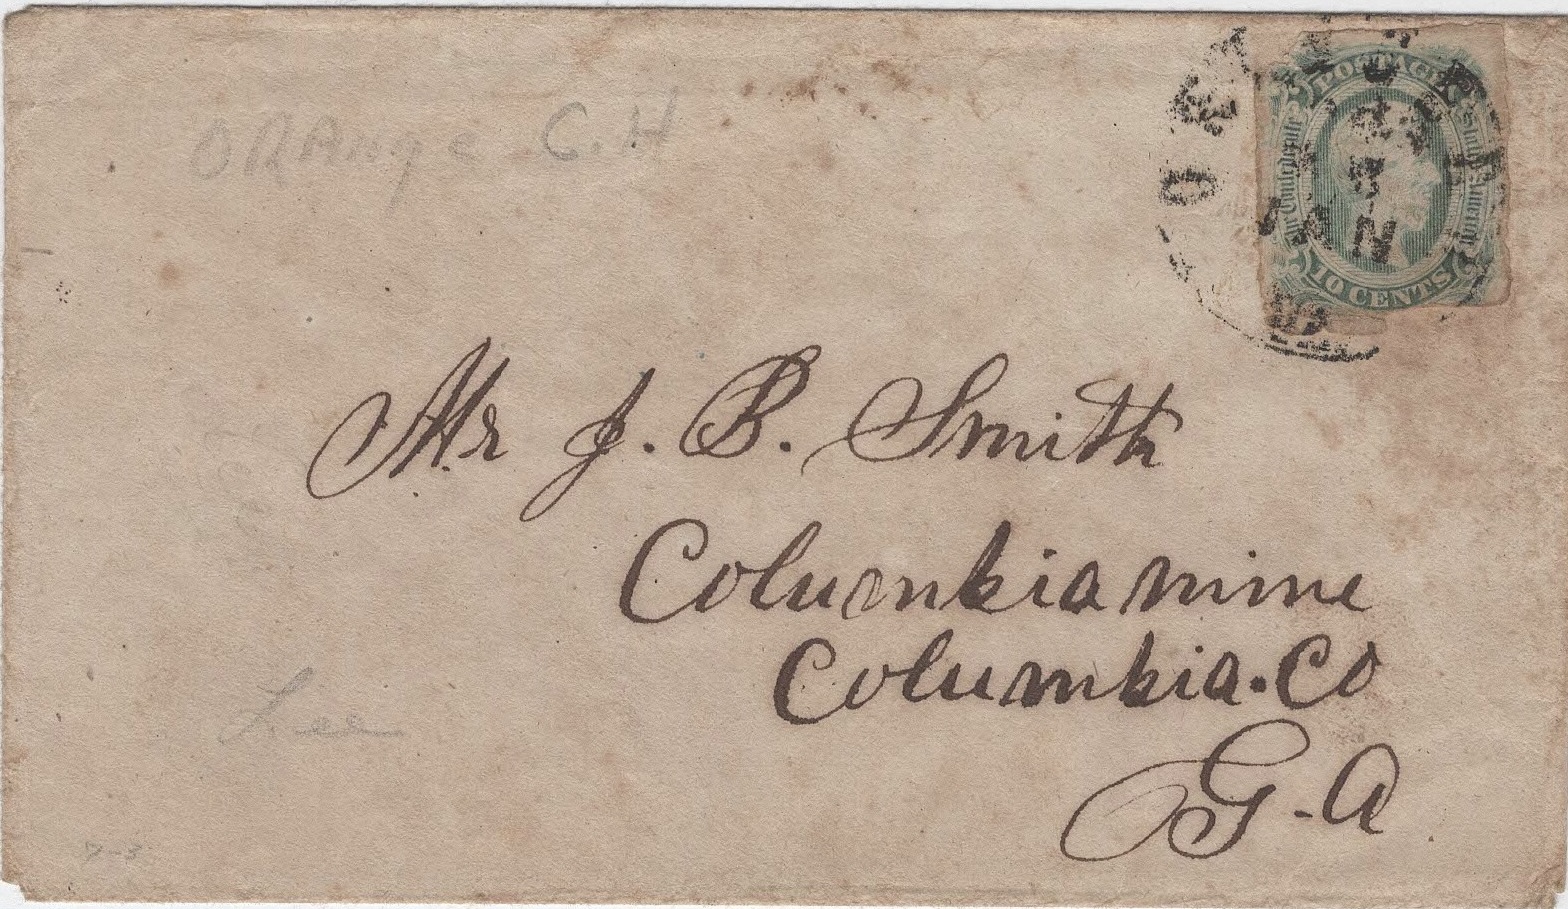 ORAnge C.H
POSTAGE
The Confederate States of America
10 CENTS
Mr J. B. Smith
Columbia mine
Columbia. Co
G-a
Lee
7-3